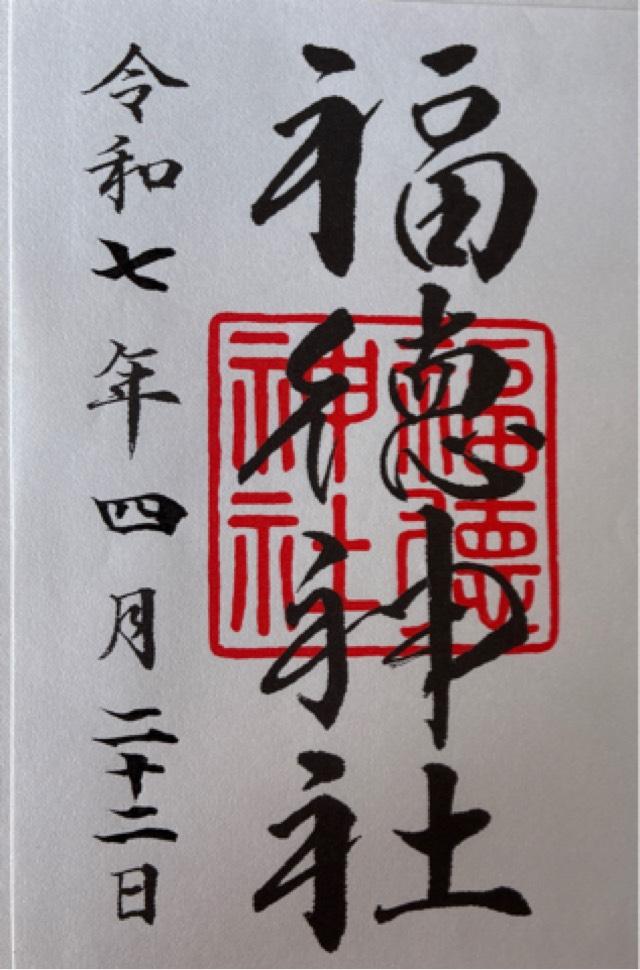 福徳神社
福德神社
令和七年四月二十二日